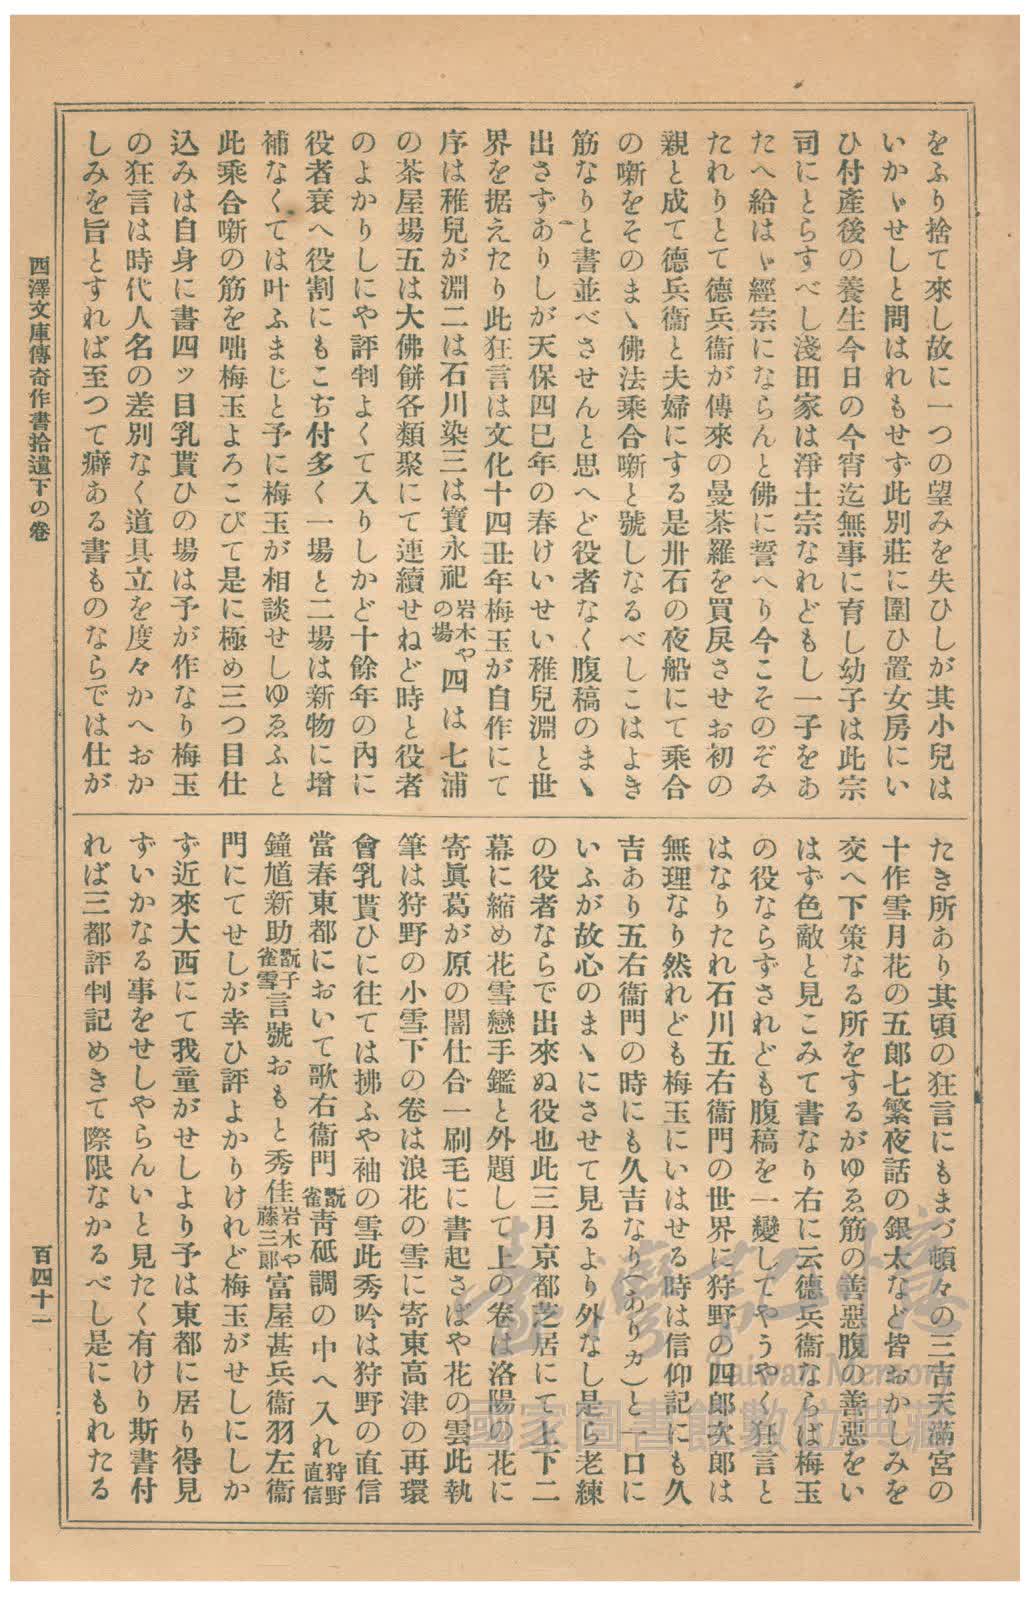 をふり捨て來し故に一つの望みを失ひしが其小兒は
いかゞせしと問はれもせず此別莊に圍ひ置女房にい
ひ付產後の養生今日の今宵迄無事に育し幼子は此宗
司にとらすべし淺田家は淨土宗なれどもし一子をあ
たへ給はゞ經宗にならんと佛に誓へり今こそのぞみ
たれりとて德兵衞が傳來の曼茶羅を買戾させお初の
親と成て德兵衞と夫婦にする是卅石の夜船にて乘合
の噺をそのまゝ佛法乘合噺と號しなるべしこはよき
筋なりと書並べさせんと思へど役者なく腹稿のまゝ
出さずありしが天保四巳年の春けいせい稚兒淵と世
界を据えたり此狂言は文化十四丑年梅玉が自作にて
序は稚兒が淵二は石川染三は寶永祀岩木やの場四は七浦
の茶屋場五は大佛餅各類聚にて連續せねど時と役者
のよかりしにや評判よくて入りしかど十餘年の內に
役者衰へ役割にもこぢ付多く一場と二場は新物に增
補なくては叶ふまじと予に梅玉が相談せしゆゑふと
此乘合噺の筋を咄梅玉よろこびて是に極め三つ目仕
込みは自身に書四ッ目乳貰ひの場は予が作なり梅玉
の狂言は時代人名の差別なく道具立を度々かへおか
しみを旨とすれば至つて癖ある書ものならでは仕が
たき所あり其頃の狂言にもまづ頓々の三吉天滿宮の
十作雪月花の五郞七繁夜話の銀太など皆おかしみを
交へ下策なる所をするがゆゑ筋の善惡腹の善惡をい
はず色敵と見こみて書なり右に云德兵衞ならば梅玉
の役ならずされども腹稿を一變してやうやく狂言と
はなりたれ石川五右衞門の世界に狩野の四郞次郞は
無理なり然れども梅玉にいはせる時は信仰記にも久
吉あり五右衞門の時にも久吉なり(ありカ)と一口に
いふが故心のまゝにさせて見るより外なし是ら老練
の役者ならで出來ぬ役也此三月京都芝居にて上下二
幕に縮め花雪戀手鑑と外題して上の卷は洛陽の花に
寄眞葛が原の闇仕合一刷毛に書起さばや花の雲此執
筆は狩野の小雪下の卷は浪花の雪に寄東高津の再環
會乳貰ひに往ては拂ふや袖の雪此秀吟は狩野の直信
當春東都において歌右衞門翫雀靑砥調の中へ入れ狩野直信
鐘馗新助翫子雀雪言號おもと秀佳岩木や藤三郞富屋甚兵衞羽左衞
門にてせしが幸ひ評よかりけれど梅玉がせしにしか
ず近來大西にて我童がせしより予は東都に居り得見
ずいかなる事をせしやらんいと見たく有けり斯書付
れば三都評判記めきて際限なかるべし是にもれたる
西澤文庫傳奇作書拾遺下の卷
百四十一
臺灣記憶
Taiwan Memory
國家圖書館數位典藏